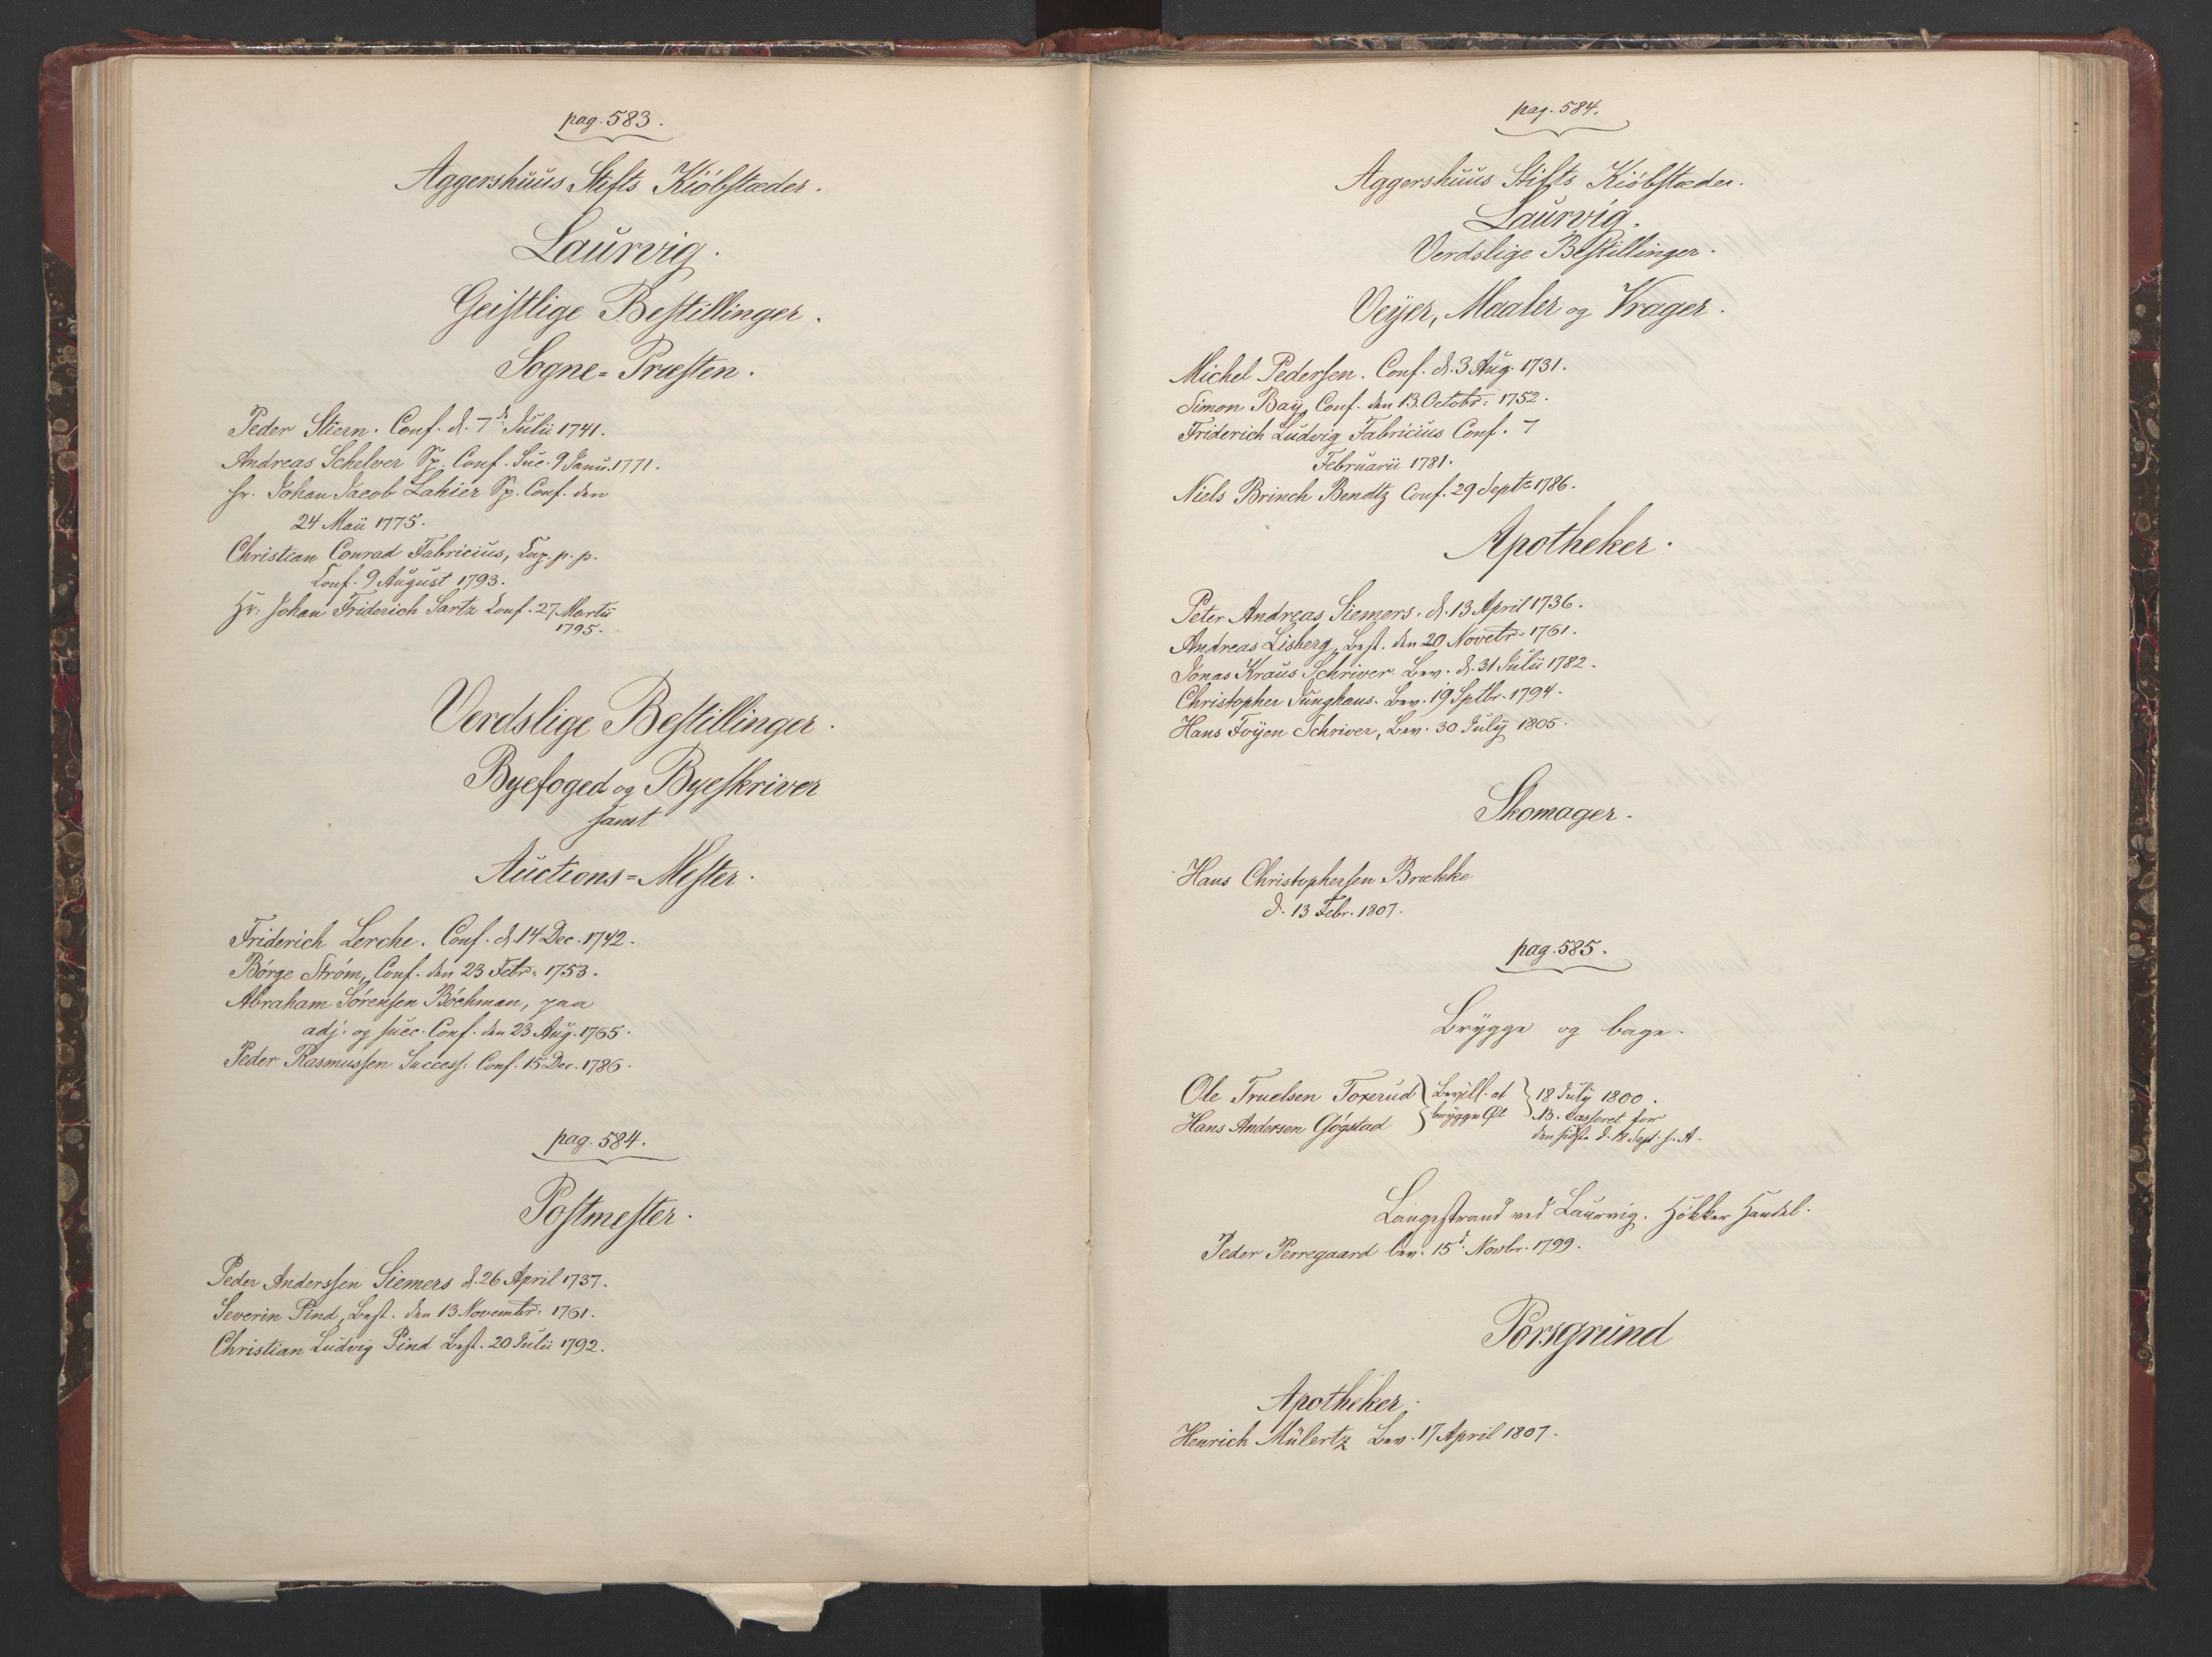 pag. 583.
Aggershuus Stifts Kiöbstæder.
Laurvig.
Geistlige Bestillinger.
Sogne-Præsten.
Peder Stiern. Conf. d. 7de Julii 1741.
Andreas Schelver Sp. Conf. Suc. 9 Janu. 1771.
hr. Johan Jacob Lahier Sp. Conf. den
24 Maii 1775.
Christian Conrad Fabricius, Cap. p. p.
Conf. 9 August 1793.
Hr. Johan Friderich Sartz Conf. 27 Martii
1795.
Verdslige Bestillinger.
Byefoged og Byeskriver
samt
Auctions-Mester.
Friderich Lerche. Conf. d. 14 Dec. 1742.
Börge Ström, Conf. den 23 Febr. 1753.
Abraham Sörensen Böchman, paa
adj. og succ. Conf. den 23 Aug. 1765.
Peder Rasmussen Success. Conf. 15 Dec. 1786.
pag. 584.
Postmester.
Peder Anderssen Siemers d. 26 April 1737.
Severin Pind, Best. den 13 Novembr. 1761.
Christian Ludvig Pind Best. 20 Julii 1792.
pag. 584.
Aggershuus Stifts Kiöbstæder.
Laurvig.
Verdslige Bestillinger.
Veyer, Maaler og Vrager.
Michel Pedersen. Conf. d. 3 Aug. 1731.
Simon Baÿ, Conf. den 13. Octobr. 1752.
Friderich Ludvig Fabricius Conf. 7
Februarii 1781.
Niels Brinch Bendtz Conf. 29 Septr 1786.
Apotheker.
Peter Andreas Siemers. d. 13 April 1736.
Andreas Lisberg, Best. den 20 Novebr. 1761.
Jonas Kraus Schriver Bev. d. 31 Julii 1782.
Christopher Junghans. Bev. 19 Sptbr. 1794.
Hans Foÿen Schriver, Bev. 30 Julÿ 1805.
Skomager.
Hans Christophersen Brække
d. 13 Febr. 1807.
pag. 585.
Brÿgge og bage.
Ole Truelsen Toxerud } Bevill. at } 18 Julÿ 1800.
Hans Andersen Gögstad } brÿgge Øl } NB. casseret for
den sidste d. 18 Sept. s. A.
Langestrand ved Laurvig. Hökker Handel.
Peder Perregaard bev. 15d. Novbr. 1799.
Porsgrund
Apotheker.
Henrich Mülertz Bev. 17 April 1807.